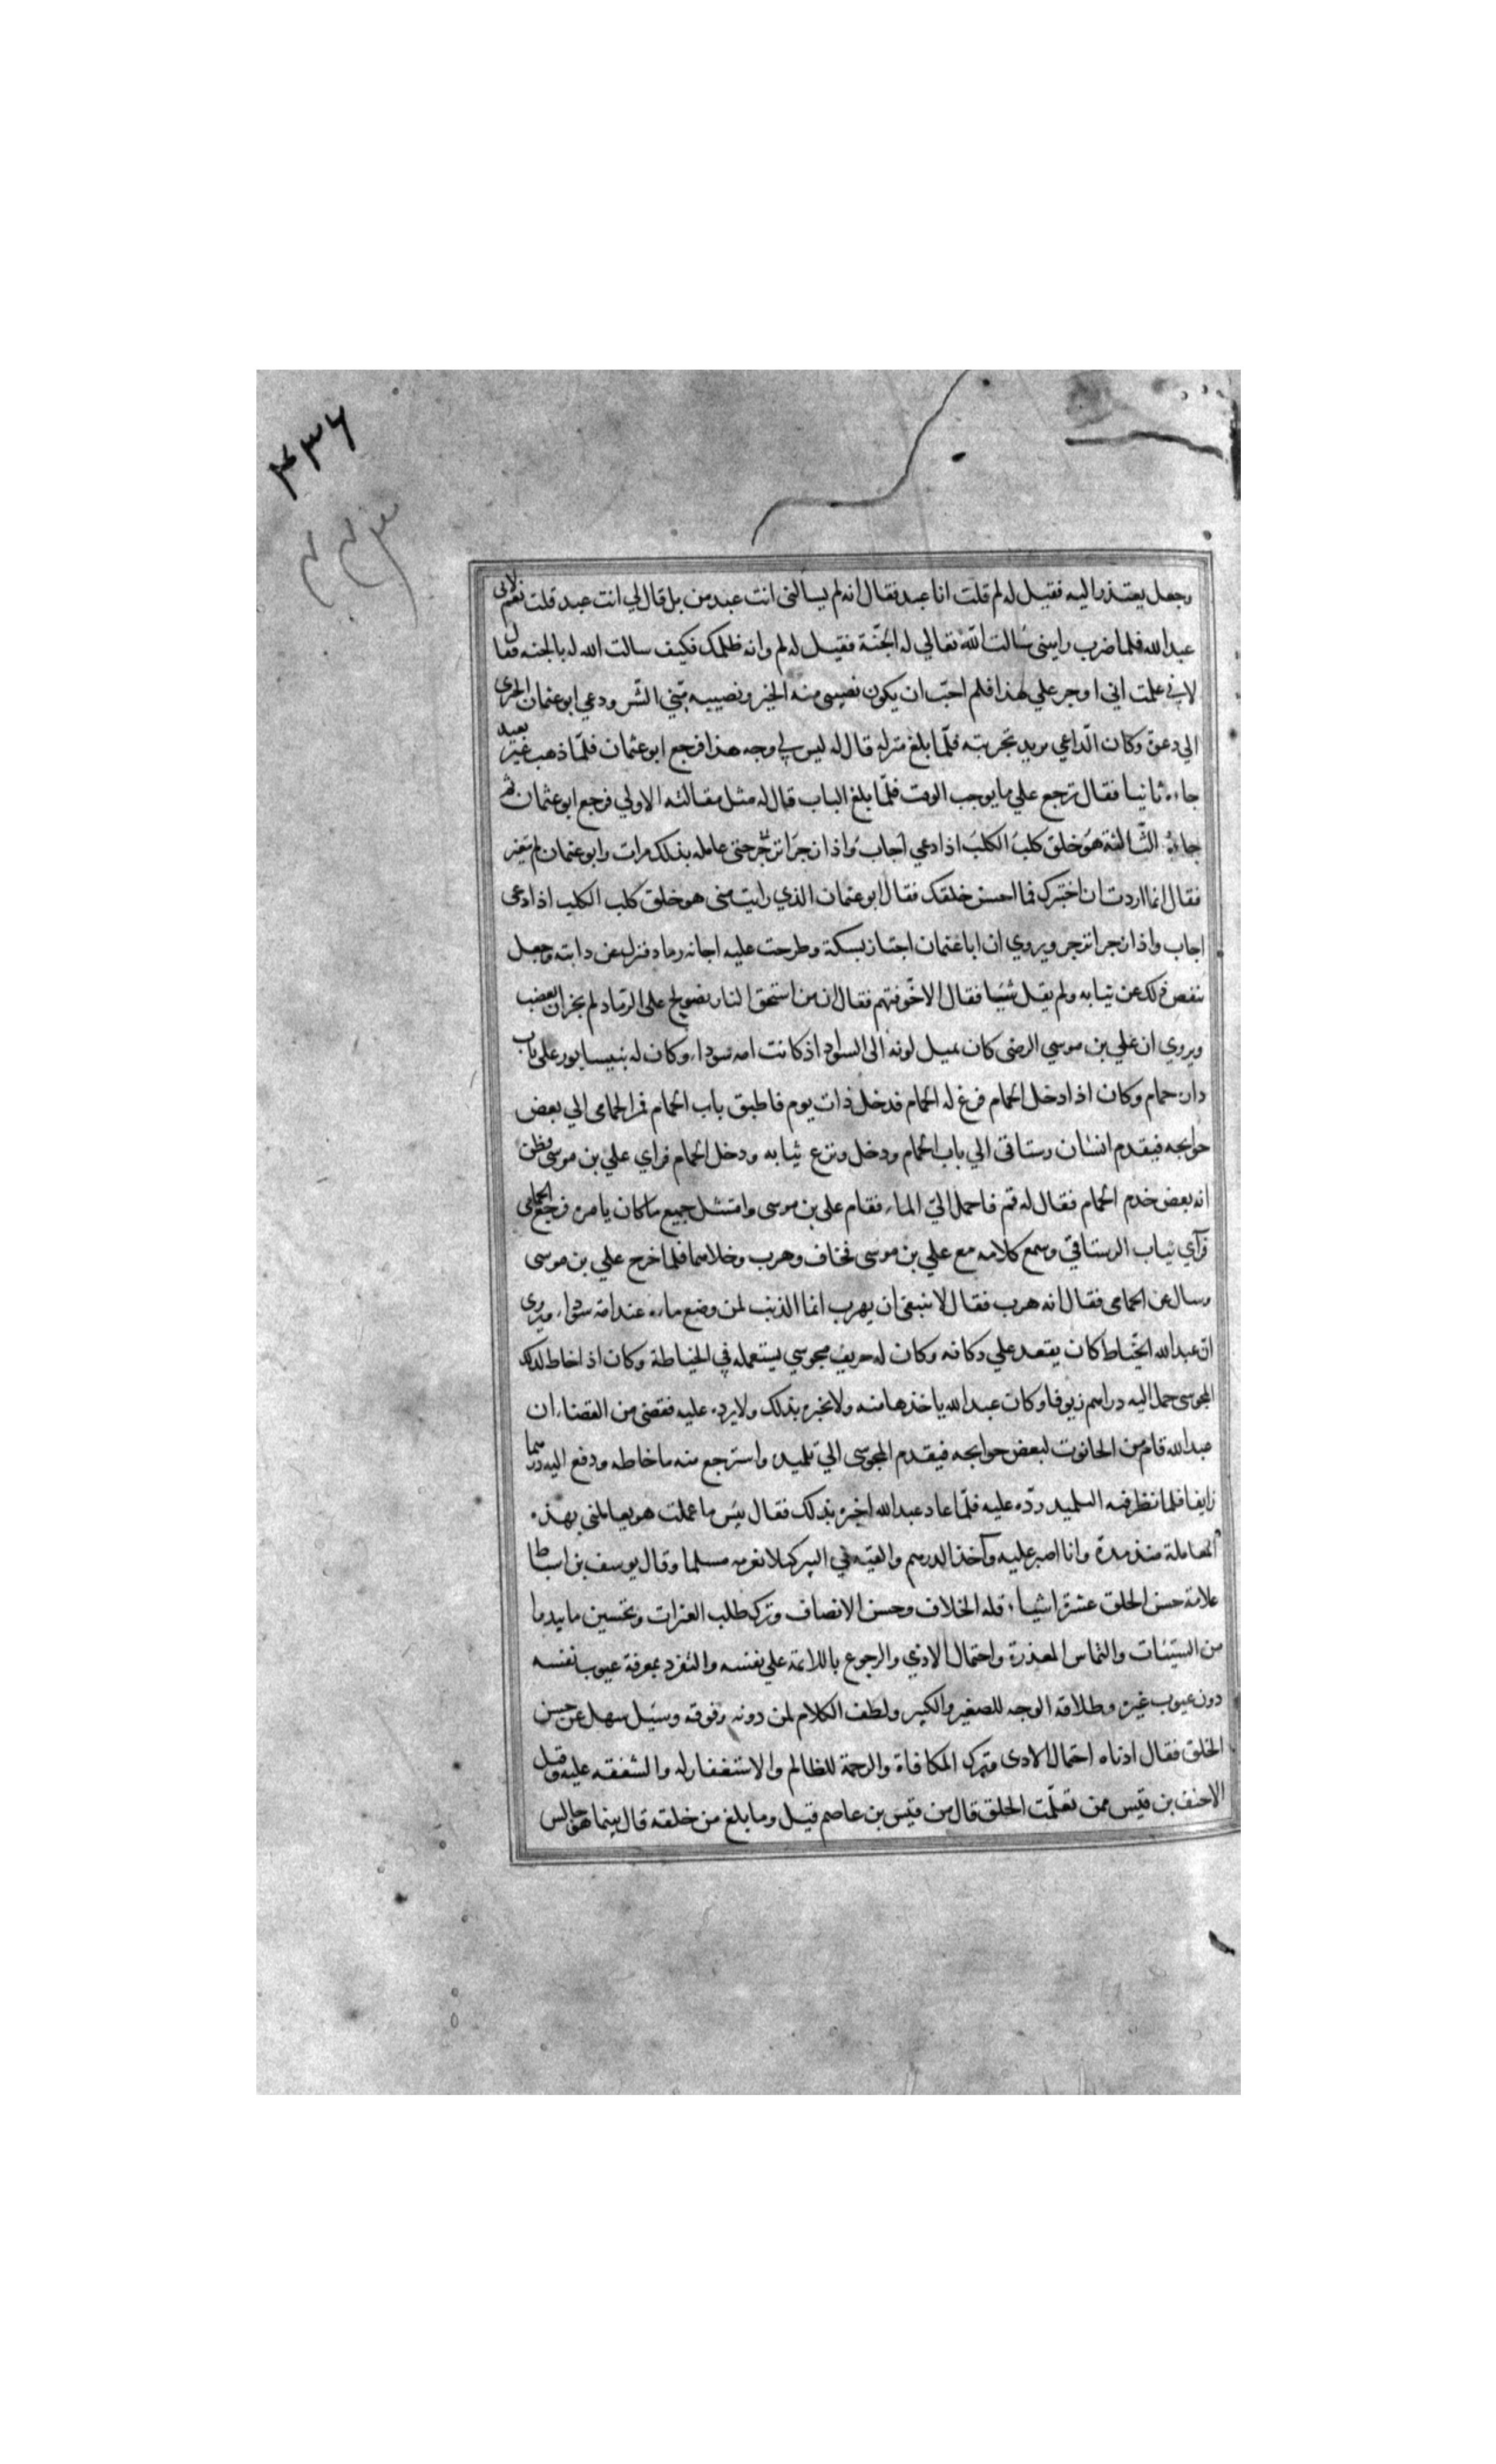 ۴۳۶
وجعل يعتذر اليه فقيل له لم قلت انا عبد فقال انه لم يسالنى انت عبد من بل قال لي انت عبد قلت نعم لانى
عبد الله فلما ضرب راسى سالت الله تعالي له الجنّة فقيل له لم وانه ظلمك فكيف سالت الله له بالجنه فقال
لاني علمت اني اوجر علي هذا فلم احبّ ان يكون نصيبى منه الخير ونصيبه منّي الشّر ودعي ابو عثمان الحيرى
الي دعوة وكان الدّاعي يريد تجربته فلمّا بلغ منزله قال له ليس لي وجه هذا فرجع ابو عثمان فلمّا ذهب غير بعيد
جاءه ثانيا فقال ترجع علي ما يوجب الوقت فلمّا بلغ الباب قال له مثل مقالته الاولي فرجع ابو عثمان ثم
جاءه الثّالثة هو خلق كلب الكلب اذا دعي اجاب واذا زجر انزجر حتى عامله بذلك مرات وابو عثمان لم يتغير
فقال انما اردت ان اختبرك فما احسن خلقك فقال ابو عثمان الذي رايت منى هو خلق كلب الكلب اذا دعى
اجاب واذا زجر انزجر ويروي ان ابا عثمان اجتاز بسكة وطرحت عليه اجانه رماد فنزل عن دابته وجعل
ينفض ذلك عن ثيابه ولم يقل شيئا فقال الا خوفتهم فقال ان من استحق النار بصولح على الرماد لم يجز ان يغضب
ويروي ان علي بن موسي الرضى كان يميل لونه الى السواد اذ كانت امه سوداء وكان له بنيسابور على باب
داره حمام وكان اذا دخل الحمام فرغ له الحمام فدخل ذات يوم فاطبق باب الحمام فمر الحمامى الي بعض
حوايجه فيقدم انسان رستاقى الي باب الحمام ودخل ونزع ثيابه ودخل الحمام فراي علي بن موسى وظن
انه بعض خدم الحمام فقال له قم فاحمل اليّ الماء فقام على بن موسى وامتثل جميع ما كان يامره فرجع الحمامى
فرآي ثياب الرستاقي وسمع كلامه مع علي بن موسى فخاف وهرب وخلاهما فلما خرج علي بن موسى
وسال عن الحمامى فقال انه هرب فقال لا ينبغى ان يهرب انما الذنب لمن وضع ماءه عند امة سوداء ويروى
ان عبد الله الخيّاط كان يقعد علي دكانه وكان له حريف مجوسي يستعمله في الخياطة وكان اذا خاط لذلك
المجوسى حمل اليه دراهم زيوفا وكان عبد الله ياخذها منه ولا يخبره بذلك ولا يرده عليه فقضى من القضاء ان
عبد الله قام من الحانوت لبعض حوايجه فيقدم المجوسى الي تلميذه واسترجع منه ما خاطه ودفع اليه درهما
زايفا فلما نظر فيه التلميذ ردّه عليه فلمّا عاد عبد الله اخبره بذلك فقال بئس ما عملت هو يعاملنى بهذه
المعاملة منذ مدة وانا اصبر عليه وآخذ الدرهم والقيه في البير كيلا يغر به مسلما وقال يوسف بن اسباط
علامة حسن الخلق عشرة اشياء قله الخلاف وحسن الانصاف وترك طلب العثرات وتحسين ما يبدو ما
من السيّئات والتماس المعذرة واحتمال الاذي والرجوع باللائمة علي نفسه والتفرد بمعرفة عيوب نفسه
دون عيوب غيره وطلاقه الوجه للصغير والكبير ولطف الكلام لمن دونه وفوقه وسئل سهل عن حسن
الخلق فقال ادناه احتمال الاذى وترك المكافاة والرحمة للظالم والاستغفار له والشفقه عليه وقيل
الاحنف بن قيس ممن تعلّمت الخلق قال من قيس بن عاصم قيل وما بلغ من خلقه قال بينما هو جالس